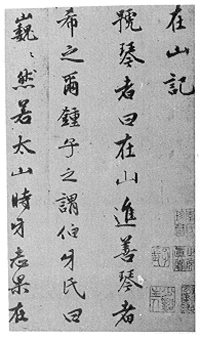 在山記
號琴者曰在山進善琴者
希之爾鍾子之謂伯牙氏曰
巍〻然若太山時牙志果在